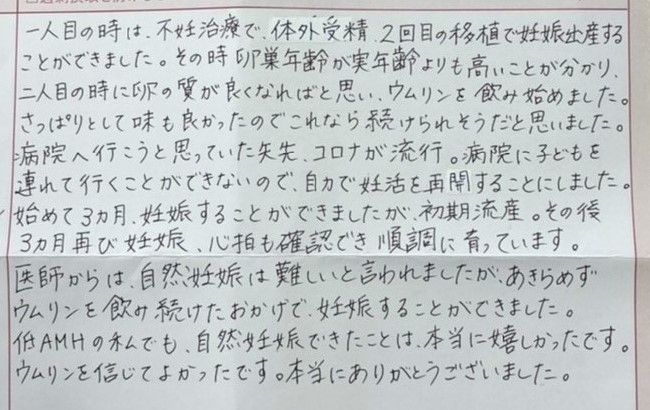 一人目の時は、不妊治療で、体外受精、2回目の移植で妊娠出産する
ことができました。その時卵巣年齢が実年齢よりも高いことが分かり、
二人目の時に卵の質が良くなればと思い、ウムリンを飲み始めました。
さっぱりとして味も良かったのでこれなら続けられそうだと思いました。
病院へ行こうと思っていた矢先、コロナが流行。病院に子どもを
連れて行くことができないので、自力で妊活を再開することにしました。
始めて3ヵ月、妊娠することができましたが、初期流産。その後
3ヵ月再び妊娠、心拍も確認でき順調に育っています。
医師からは、自然妊娠は難しいと言われましたが、あきらめず
ウムリンを飲み続けたおかげで、妊娠することができました。
低AMHの私でも、自然妊娠できたことは、本当に嬉しかったです。
ウムリンを信じてよかったです。本当にありがとうございました。